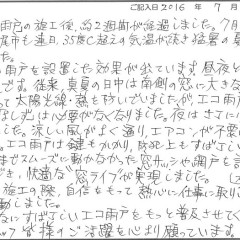 ご記入日 2016 年 7 月
雨戸の施工後、約2週間が経過しました。7月
尾市も連日、35度C超えの気温が続き猛暑の夏
た。
雨戸を設置した効果が出ています。昼夜と
です。従来、真夏の日中は南側の窓に大きな
って太陽光線・熱を防いでいましたが、エコ雨戸
なしずは必要がなくなりました。夜はさらに
た。涼しい風がよく通り、エアコンが不要
エコ雨戸は鍵もかかり、防犯上もすばらしい
まではスムーズに動かなかった窓サッシや網戸も
き、快適な「窓ライフ」が実現しました。
施工の際、自信をもって熱心に仕事に取り
動しました。
にすばらしいエコ雨戸をもっと普及させて
皆様のご活躍を心より願っています。